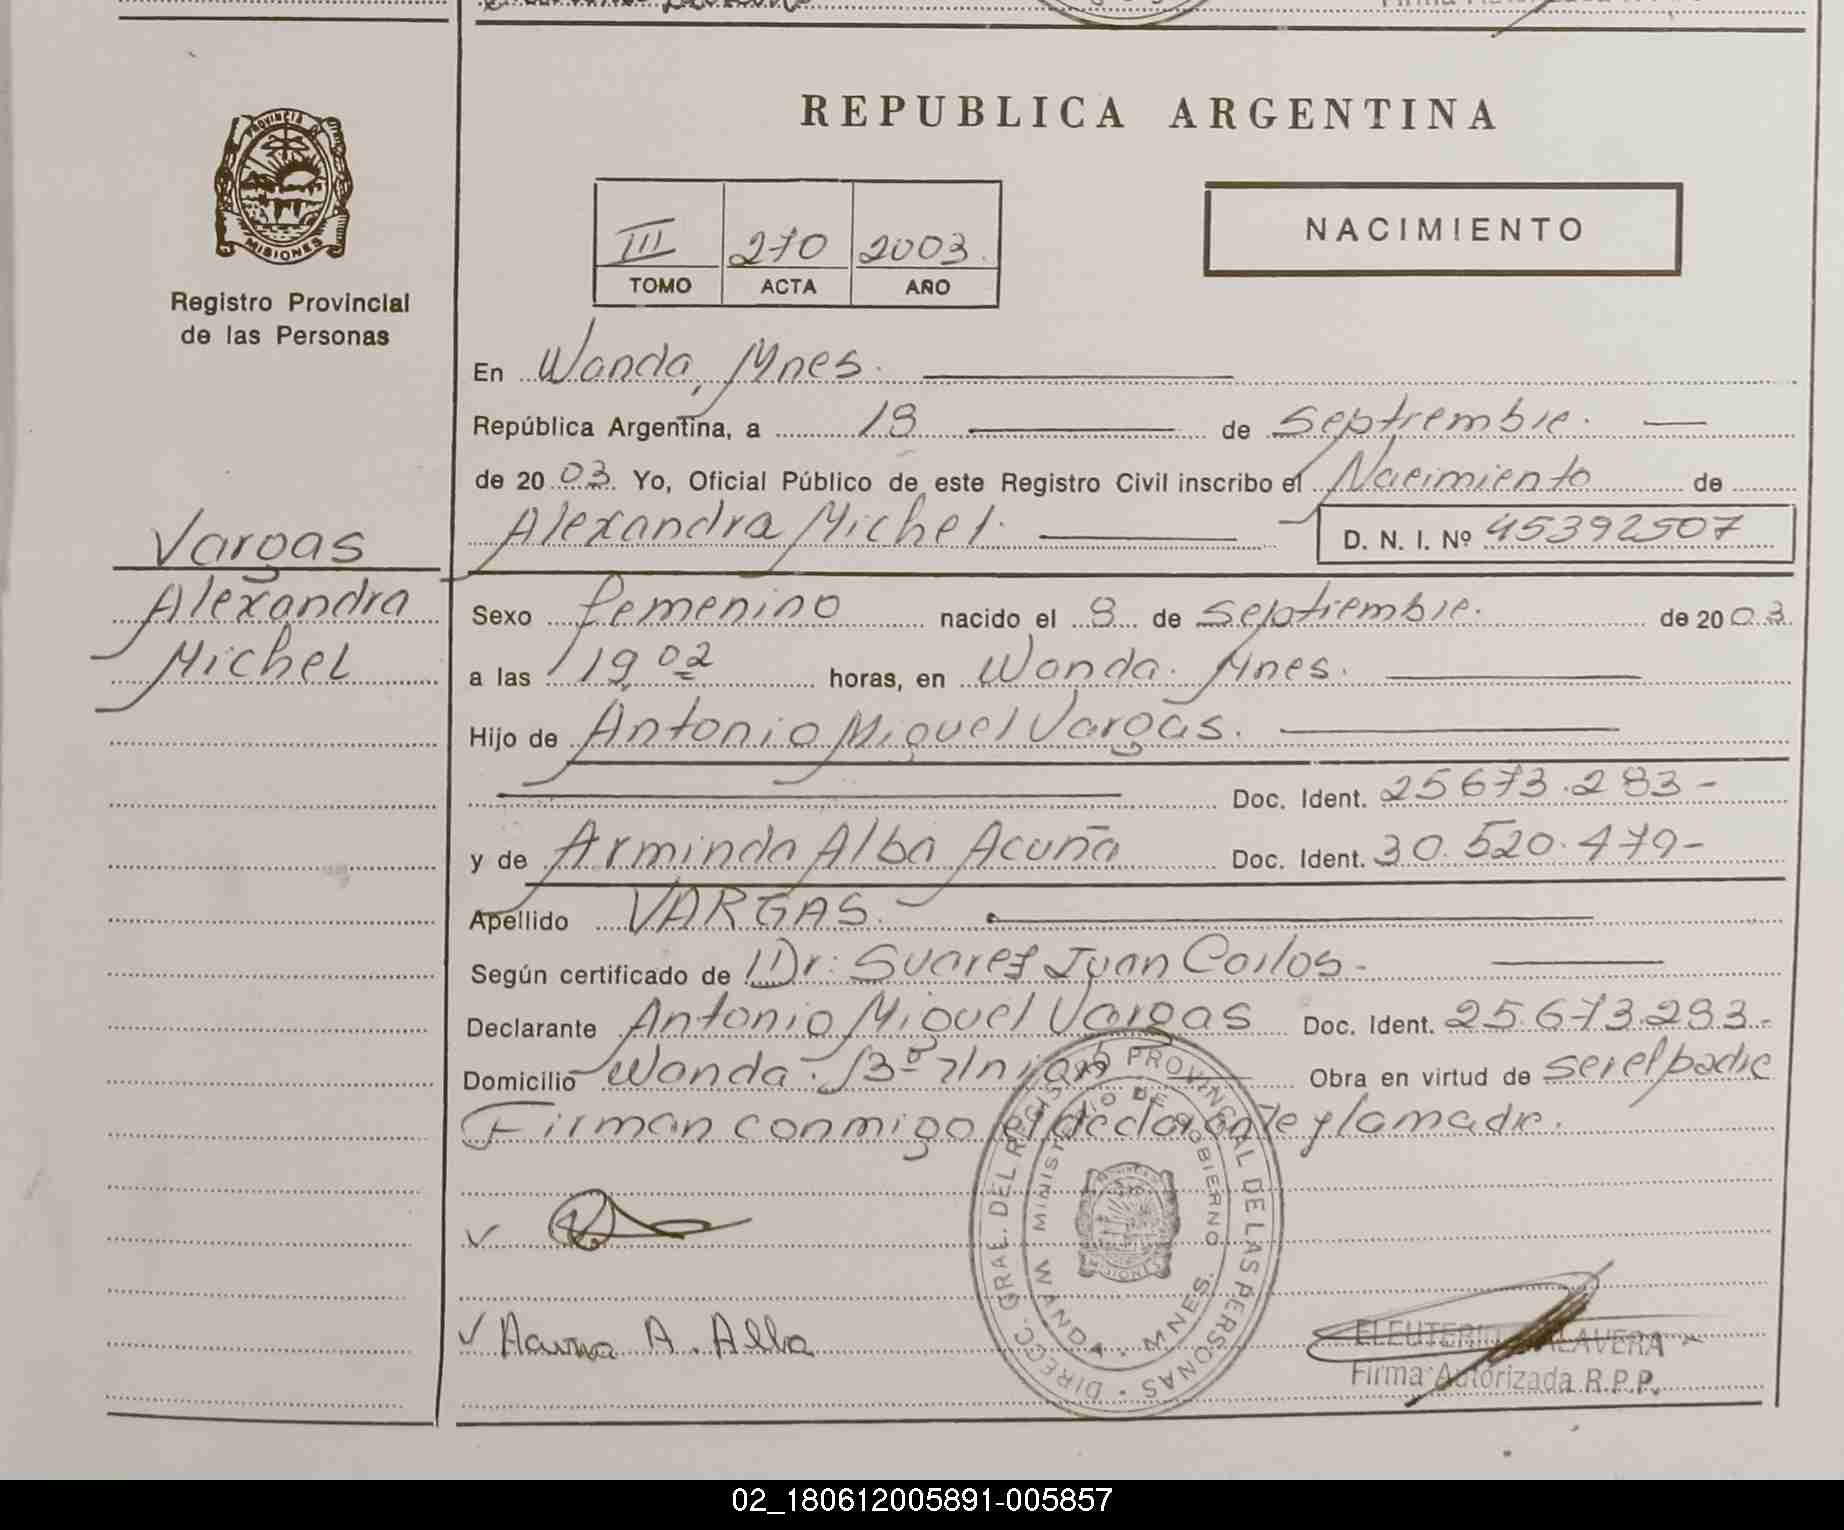 REPUBLICA ARGENTINA
PROVINCIA DE
MISIONES
Registro Provincial
de las Personas
III 270 2003
TOMO ACTA AÑO
NACIMIENTO
En Wanda, Mnes.
República Argentina, a 18 de Septiembre.
de 2003. Yo, Oficial Público de este Registro Civil inscribo el Nacimiento de
Alexandra Michel. D. N. I. Nº 45392507
Vargas
Alexandra
Michel
Sexo femenino nacido el 8 de Septiembre. de 2003.
a las 19,02 horas, en Wanda. Mnes.
Hijo de Antonio Miguel Vargas.
Doc. Ident. 25673.283-
y de Arminda Alba Acuña Doc. Ident. 30.520.479-
Apellido VARGAS.
Según certificado de Dr: Suarez Juan Carlos-
Declarante Antonio Miguel Vargas Doc. Ident. 25.673.283-
Domicilio Wanda. Bº Unión Obra en virtud de ser el padre
Firman conmigo el declarante y la madre.
DIRECC. GRAL. DEL REGISTRO PROVINCIAL DE LAS PERSONAS
MINISTERIO DE GOBIERNO
WANDA - MNES.
Acuna A. Alba
Firma Autorizada R.P.P.
02_180612005891-005857